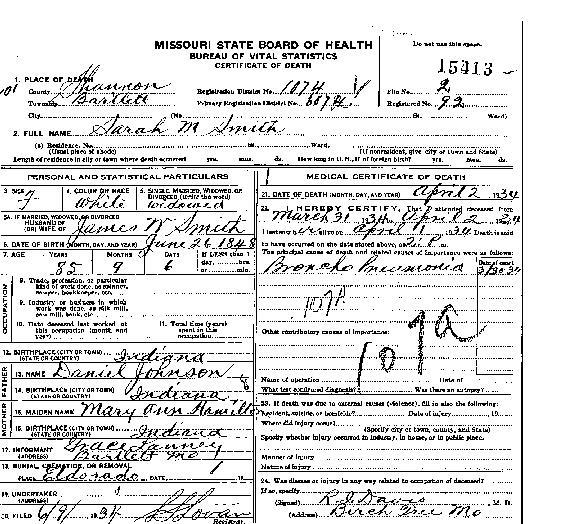 MISSOURI STATE BOARD OF HEALTH
BUREAU OF VITAL STATISTICS
CERTIFICATE OF DEATH
Do not use this space.
15413
1. PLACE OF DEATH
County Shannon Registration District No. 1074 File No. 2
Township Bartlett Primary Registration District No. Registered No. 92
City (No. St. Ward)
2. FULL NAME Sarah M Smith
(a) Residence, No. St. Ward.
(Usual place of abode) (If nonresident, give city or town and State)
Length of residence in city or town where death occurred yrs. mos. ds. How long in U. S., if of foreign birth? yrs. mos. ds.
PERSONAL AND STATISTICAL PARTICULARS
3. SEX F
4. COLOR OR RACE White
5. SINGLE, MARRIED, WIDOWED, OR DIVORCED (write the word) Widowed
5A. IF MARRIED, WIDOWED, OR DIVORCED
HUSBAND OF
(OR) WIFE OF James W Smith
6. DATE OF BIRTH (MONTH, DAY, AND YEAR) June 26 1848
7. AGE YEARS MONTHS DAYS If LESS than 1
day, hrs.
or min.
85 9 6
OCCUPATION
8. Trade, profession, or particular
kind of work done, as spinner,
sawyer, bookkeeper, etc.
9. Industry or business in which
work was done, as silk mill,
saw mill, bank, etc.
10. Date deceased last worked at
this occupation (month and
year)
11. Total time (years)
spent in this
occupation
12. BIRTHPLACE (CITY OR TOWN)
(STATE OR COUNTRY) Indiana
FATHER
13. NAME Daniel Johnson
14. BIRTHPLACE (CITY OR TOWN)
(STATE OR COUNTRY) Indiana
MOTHER
15. MAIDEN NAME Mary Ann Hamilton
16. BIRTHPLACE (CITY OR TOWN)
(STATE OR COUNTRY) Indiana
17. INFORMANT Grace
(ADDRESS) Bartlett Mo
18. BURIAL, CREMATION, OR REMOVAL
PLACE Eldorado DATE 19
19. UNDERTAKER
(ADDRESS)
20. FILED 6/9/ 34
Registrar.
MEDICAL CERTIFICATE OF DEATH
21. DATE OF DEATH (MONTH, DAY, AND YEAR) April 2 1934
22. I HEREBY CERTIFY, That I attended deceased from
March 31 1934, to April 2 1934
I last saw alive on April 1 1934. Death is said
to have occurred on the date stated above, at
The principal cause of death and related causes of importance were as follows:
Date of onset
Broncho Pneumonia 3/30/34
107A
107a
Other contributory causes of importance:
Name of operation Date of
What test confirmed diagnosis? Was there an autopsy?
23. If death was due to external causes (violence), fill in also the following:
Accident, suicide, or homicide? Date of injury 19
Where did injury occur?
(Specify city or town, county, and State)
Specify whether injury occurred in industry, in home, or in public place.
Manner of injury
Nature of injury
24. Was disease or injury in any way related to occupation of deceased?
If so, specify
(Signed) Davis M. D.
(Address) Birch Tree Mo